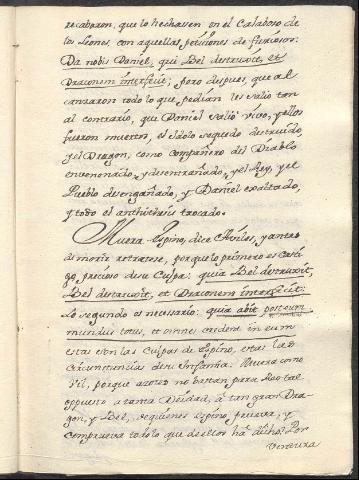 recabaron, que lo hechasen en el Calabozo de
los Leones, con aquellas peticiones de furiosos:
Da nobis Daniel, qui Bel destruxit, et
Draconem interfecit; pero despues, que al
canzaron todo lo que pedian les salio tan
al contrario, que Daniel salió vivo, y ellos
fueron muertos, el Idolo segundo destruido,
y el Dragon, como compañero del Diablo
envenenado, y desentrañado, y el Rey, y el
Pueblo desengañado, y Daniel exaltado,
y todo el anthithesis trocado.
Muera Espino, dice Aviles, y antes
de morir retratese, porque lo primero es casti
go, preciso de su Culpa: quia Bel destruxit,
Bel destruxit, et Draconem interfecit:
Lo segundo es necesario: quia abit post eum
mundus totus, et omnes credent in eum
estas son las Culpas de Espino, estas las
circunstancias de su Infamia. Muera como
Vil, porque azotes no bastan para
opuesto a tanta Deidad, a tan gran Dra-
gon, y Bel, segun es Espino, y
comprueva todo lo que de ellos ha dicho Por
ventura